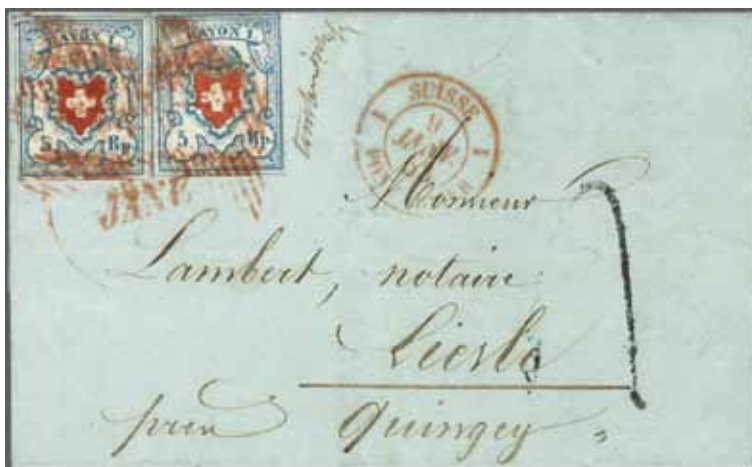 RAYON I.
RAYON I.
5 Rp
5 Rp
SUISSE
1 9 1
JANV.
JANV
Monsieur
Lambert, notaire
Liesle
près Quingey